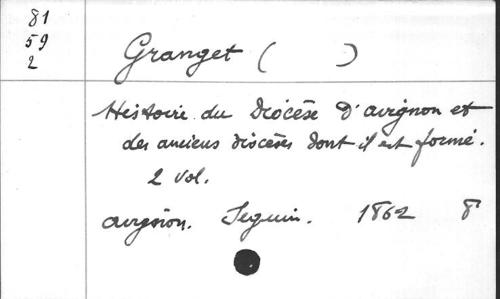 81
59
2
Granget ( )
Histoire du Diocèse d'avignon et
des anciens diocèses dont il est formé.
2 vol.
avignon. Seguin. 1862 8°